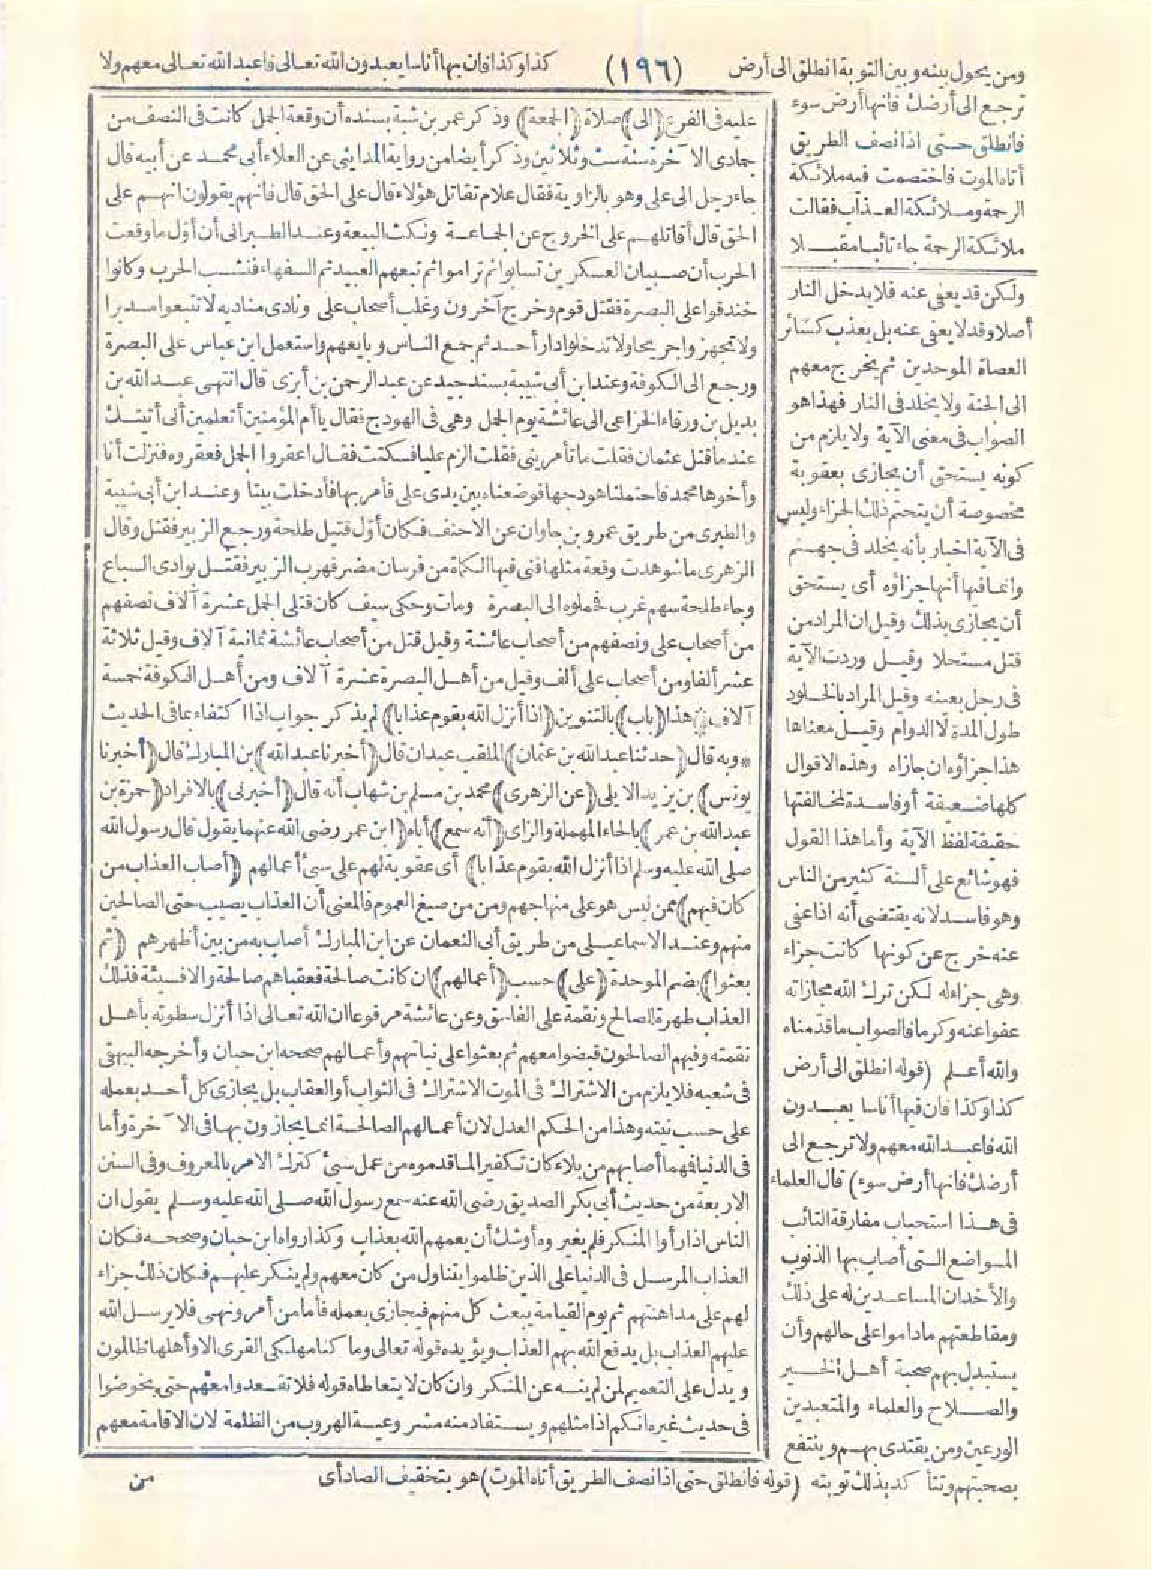 ومن يحول بينه وبين التوبة انطلق الى أرض (١٩٦) كذا وكذا فان بها أناسا يعبدون الله تعالى فاعبد الله تعالى معهم ولا
ترجع الى أرضك فانها أرض سوء
فانطلق حتى اذا نصف الطريق
أتاه الموت فاختصمت فيه ملائكة
الرحمة وملائكة العذاب فقالت
ملائكة الرحمة جاء تائبا مقبلا
ولكن قد يعفى عنه فلا يدخل النار
أصلا وقد لا يعفى عنه بل يعذب كسائر
العصاة الموحدين ثم يخرج معهم
الى الجنة ولا يخلد في النار فهذا هو
الصواب في معنى الآية ولا يلزم من
كونه يستحق أن يجازى بعقوبة
مخصوصة أن يتحتم ذلك الجزاء وليس
في الآية اخبار بأنه يخلد في جهنم
وانما فيها أنها جزاؤه أى يستحق
أن يجازى بذلك وقيل ان المراد من
قتل مستحلا وقيل وردت الآية
في رجل بعينه وقيل المراد بالخلود
طول المدة لا الدوام وقيل معناها
هذا جزاؤه ان جازاه وهذه الاقوال
كلها ضعيفة أو فاسدة لمخالفتها
حقيقة لفظ الآية وأما هذا القول
فهو شائع على ألسنة كثير من الناس
وهو فاسد لانه يقتضى أنه اذا عفى
عنه خرج عن كونها كانت جزاء
وهى جزاء له لكن ترك الله مجازاته
عفوا عنه وكرما فالصواب ما قدمناه
والله أعلم (قوله انطلق الى أرض
كذا وكذا فان فيها أناسا يعبدون
الله فاعبد الله معهم ولا ترجع الى
أرضك فانها أرض سوء) قال العلماء
في هذا استحباب مفارقة التائب
المواضع التى أصاب بها الذنوب
والأخدان المساعدين له على ذلك
ومقاطعتهم ماداموا على حالهم وأن
يستبدل بهم صحبة أهل الخير
والصلاح والعلماء والمتعبدين
الورعين ومن يقتدى بهم وينتفع
بصحبتهم وتتأكد بذلك توبته (قوله فانطلق حتى اذا نصف الطريق أتاه الموت) هو بتخفيف الصاد أى
عليه في الفرع (الى) صلاة (الجمعة) وذكر عمر بن شبة بسنده أن وقعة الجمل كانت في النصف من
جمادى الآخرة سنة ست وثلاثين وذكر أيضا من رواية المدائنى عن العلاء أبى محمد عن أبيه قال
جاء رجل الى على وهو بالزاوية فقال علام تقاتل هؤلاء قال على الحق قال فانهم يقولون انهم على
الحق قال أقاتلهم على الخروج عن الجماعة ونكث البيعة وعند الطبرانى أن أول ما وقعت
الحرب أن صبيان العسكرين تسابوا ثم تراموا ثم تبعهم العبيد ثم السفهاء فنشب الحرب وكانوا
خندقوا على البصرة فقتل قوم وخرج آخرون وغلب أصحاب على ونادى مناديه لا تتبعوا مدبرا
ولا تجهزوا جريحا ولا تدخلوا دار أحد ثم جمع الناس وبايعهم واستعمل ابن عباس على البصرة
ورجع الى الكوفة وعند ابن أبى شيبة بسند جيد عن عبد الرحمن بن أبزى قال انتهى عبد الله بن
بديل بن ورقاء الخزاعى الى عائشة يوم الجمل وهى في الهودج فقال يا أم المؤمنين أتعلمين أنى أتيتك
عندما قتل عثمان فقلت ما تأمرينى فقلت الزم عليا فسكتت فقال اعقروا الجمل فعقروه فنزلت أنا
وأخوها محمد فاحتملنا هودجها فوضعناه بين يدى على فأمر بها فأدخلت بيتا وعند ابن أبى شيبة
والطبرى من طريق عمرو بن جاوان عن الاحنف فكان أول قتيل طلحة ورجع الزبير فقتل وقال
الزهرى ما شوهدت وقعة مثلها فنى فيها الكماة من فرسان مضر فهرب الزبير فقتل بوادى السباع
وجاء طلحة سهم غرب فحملوه الى البصرة ومات وحكى سيف كان قتلى الجمل عشرة آلاف نصفهم
من أصحاب على ونصفهم من أصحاب عائشة وقيل قتل من أصحاب عائشة ثمانية آلاف وقيل ثلاثة
عشر ألفا ومن أصحاب على ألف وقيل من أهل البصرة عشرة آلاف ومن أهل الكوفة خمسة
آلاف * هذا (باب) بالتنوين (اذا أنزل الله بقوم عذابا) لم يذكر جواب اذا اكتفاء بما في الحديث
* وبه قال (حدثنا عبد الله بن عثمان) الملقب عبدان قال (أخبرنا عبد الله) بن المبارك قال (أخبرنا
يونس) بن يزيد الايلى (عن الزهرى) محمد بن مسلم بن شهاب أنه قال (أخبرنى) بالافراد (حمزة بن
عبد الله بن عمر) بالحاء المهملة والزاى (أنه سمع) أباه (ابن عمر رضى الله عنهما يقول قال رسول الله
صلى الله عليه وسلم اذا أنزل الله بقوم عذابا) أى عقوبة لهم على سئ أعمالهم (أصاب العذاب من
كان فيهم) ممن ليس هو على منهاجهم ومن من صيغ العموم فالمعنى أن العذاب يصيب حتى الصالحين
منهم وعند الاسماعيلى من طريق أبى النعمان عن ابن المبارك أصاب به من بين أظهرهم (ثم
بعثوا) بضم الموحدة (على) حسب (أعمالهم) ان كانت صالحة فعقباهم صالحة والا فسيئة فذلك
العذاب طهرة للصالح ونقمة على الفاسق وعن عائشة مرفوعا ان الله تعالى اذا أنزل سطوته بأهل
نقمته وفيهم الصالحون قبضوا معهم ثم بعثوا على نياتهم وأعمالهم صححه ابن حبان وأخرجه البيهقى
في شعبه فلا يلزم من الاشتراك في الموت الاشتراك في الثواب أو العقاب بل يجازى كل أحد بعمله
على حسب نيته وهذا من الحكم العدل لان أعمالهم الصالحة انما يجازون بها في الآخرة وأما
في الدنيا فهما أصابهم من بلاء كان تكفيرا لما قدموه من عمل سئ كترك الامر بالمعروف وفى السنن
الاربعة من حديث أبى بكر الصديق رضى الله عنه سمع رسول الله صلى الله عليه وسلم يقول ان
الناس اذا رأوا المنكر فلم يغيروه أوشك أن يعمهم الله بعذاب وكذا رواه ابن حبان وصححه فكان
العذاب المرسل في الدنيا على الذين ظلموا يتناول من كان معهم ولم ينكر عليهم فكان ذلك جزاء
لهم على مداهنتهم ثم يوم القيامة يبعث كل منهم فيجازى بعمله فأما من أمر ونهى فلا يرسل الله
عليهم العذاب بل يدفع الله بهم العذاب ويؤيده قوله تعالى وما كنا مهلكى القرى الا وأهلها ظالمون
ويدل على التعميم لمن لم ينه عن المنكر وان كان لا يتعاطاه قوله فلا تقعدوا معهم حتى يخوضوا
في حديث غيره انكم اذا مثلهم ويستفاد منه مشروعية الهروب من الظلمة لان الاقامة معهم
من